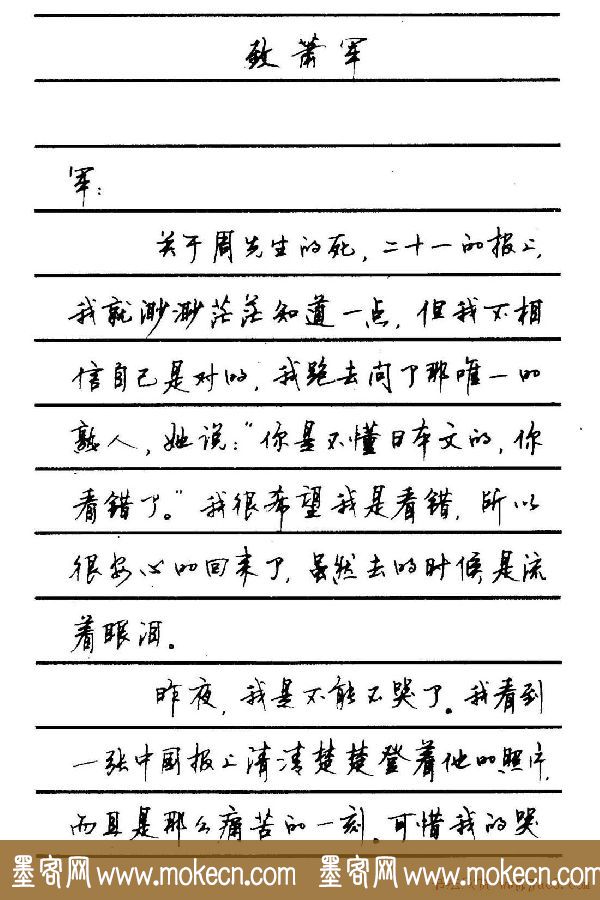 致萧军
军：
关于周先生的死，二十一的报上，
我就渺渺茫茫知道一点，但我不相
信自己是对的，我跑去问了那唯一的
熟人，她说：“你是不懂日本文的，你
看错了。”我很希望我是看错，所以
很安心的回来了，虽然去的时候是流
着眼泪。
昨夜，我是不能不哭了。我看到
一张中国报上清清楚楚登着他的照片，
而且是那么痛苦的一刻。可惜我的哭
墨客网 www.mokecn.com 墨客网 www.mokecn.com